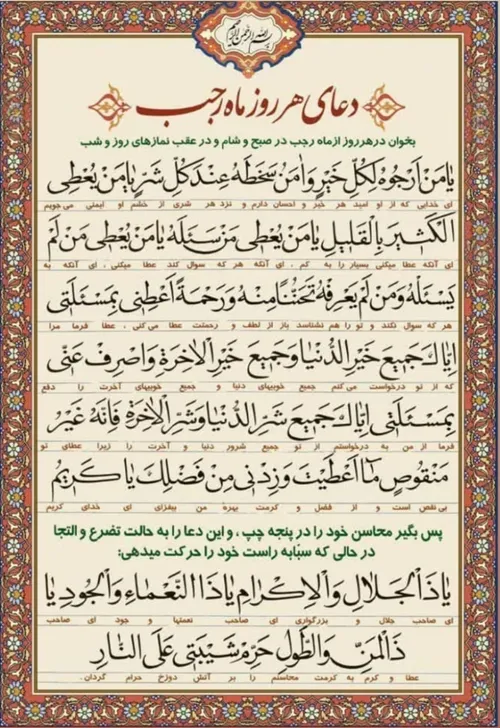 بسم الله الرحمن الرحیم
دعای هر روز ماه رجب
بخوان در هر روز از ماه رجب در صبح و شام و در عقب نمازهای روز و شب
یا مَنْ اَرْجُوهُ لِکُلِّ خَیْرٍ وَ امَنُ سَخَطَهُ عِنْدَ کُلِّ شَرٍّ یا مَنْ یُعْطِی
ای خدایی که از او امید هر خیر و احسان دارم و نزد هر شری از خشم او ایمنی می جویم
الْکَثیرَ بِالْقَلیلِ یا مَنْ یُعْطی مَنْ سَئَلَهُ یا مَنْ یُعْطی مَنْ لَمْ
ای آنکه عطا میکنی بسیار را به کم ، ای آنکه هر که سوال کند عطا میکنی ، ای آنکه به
یَسْئَلْهُ وَ مَنْ لَمْ یَعْرِفْهُ تَحَنُّناً مِنْهُ وَ رَحْمَةً اَعْطِنی بِمَسْئَلَتی
هر که سوال نکند و تو را هم نشناسد باز از لطف و رحمتت عطا می کنی ، عطا فرما مرا
اِیّاکَ جَمیعَ خَیْرِ الدُّنْیا وَ جَمیعَ خَیْرِ الْاخِرَةِ وَ اصْرِفْ عَنّی
که از تو درخواست می کنم جمیع خوبیهای دنیا و جمیع خوبیهای آخرت را و دفع
بِمَسْئَلَتی اِیّاکَ جَمیعَ شَرِّ الدُّنْیا وَ شَرِّ الْاخِرَةِ فَاِنَّهُ غَیْرُ
فرما از من به درخواستم از تو جمیع شرور دنیا و آخرت را زیرا عطای تو
مَنْقُوصٍ ما اَعْطَیْتَ وَ زِدْنی مِنْ فَضْلِکَ یا کَریمُ
بی نقص است و از فضل و کرمت بهره من بیفزای ای خدای کریم
پس بگیر محاسن خود را در پنجه چپ، و این دعا را به حالت تضرع و التجا
در حالی که سبّابه راست خود را حرکت میدهی:
یا ذَا الْجَلالِ وَ الْاِکْرامِ یا ذَا النَّعْماءِ وَ الْجُودِ یا
ای صاحب جلال و بزرگواری ای صاحب نعمتها و جود ای صاحب
ذَا الْمَنِّ وَ الطَّوْلِ حَرِّمْ شَیْبَتی عَلَی النّارِ
عطا و کرم به کرمت محاسنم را بر آتش دوزخ حرام گردان.